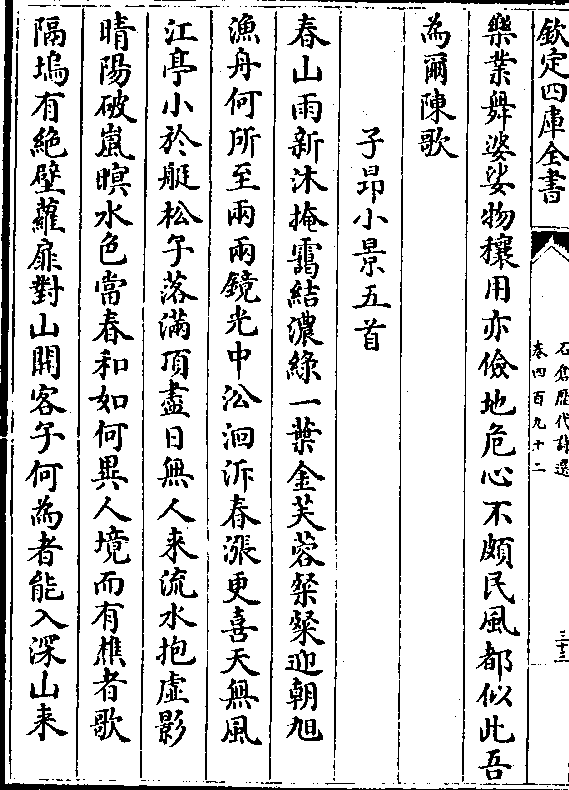 欽定四庫全書
石倉歷代詩選
卷四百九十二
三十三
樂業舞婆娑物穰用亦儉地危心不頗民風都似此吾
為爾陳歌
子昂小景五首
春山雨新沐掩靄結濃綠一葉金芙蓉粲粲迎朝旭
漁舟何所至兩兩鏡光中沿洄泝春漲更喜天無風
江亭小於艇松子落滿頂盡日無人来流水抱虛影
晴陽破嵐暝水色當春和如何異人境而有樵者歌
隔塢有絶壁蘿扉對山開客子何為者能入深山来